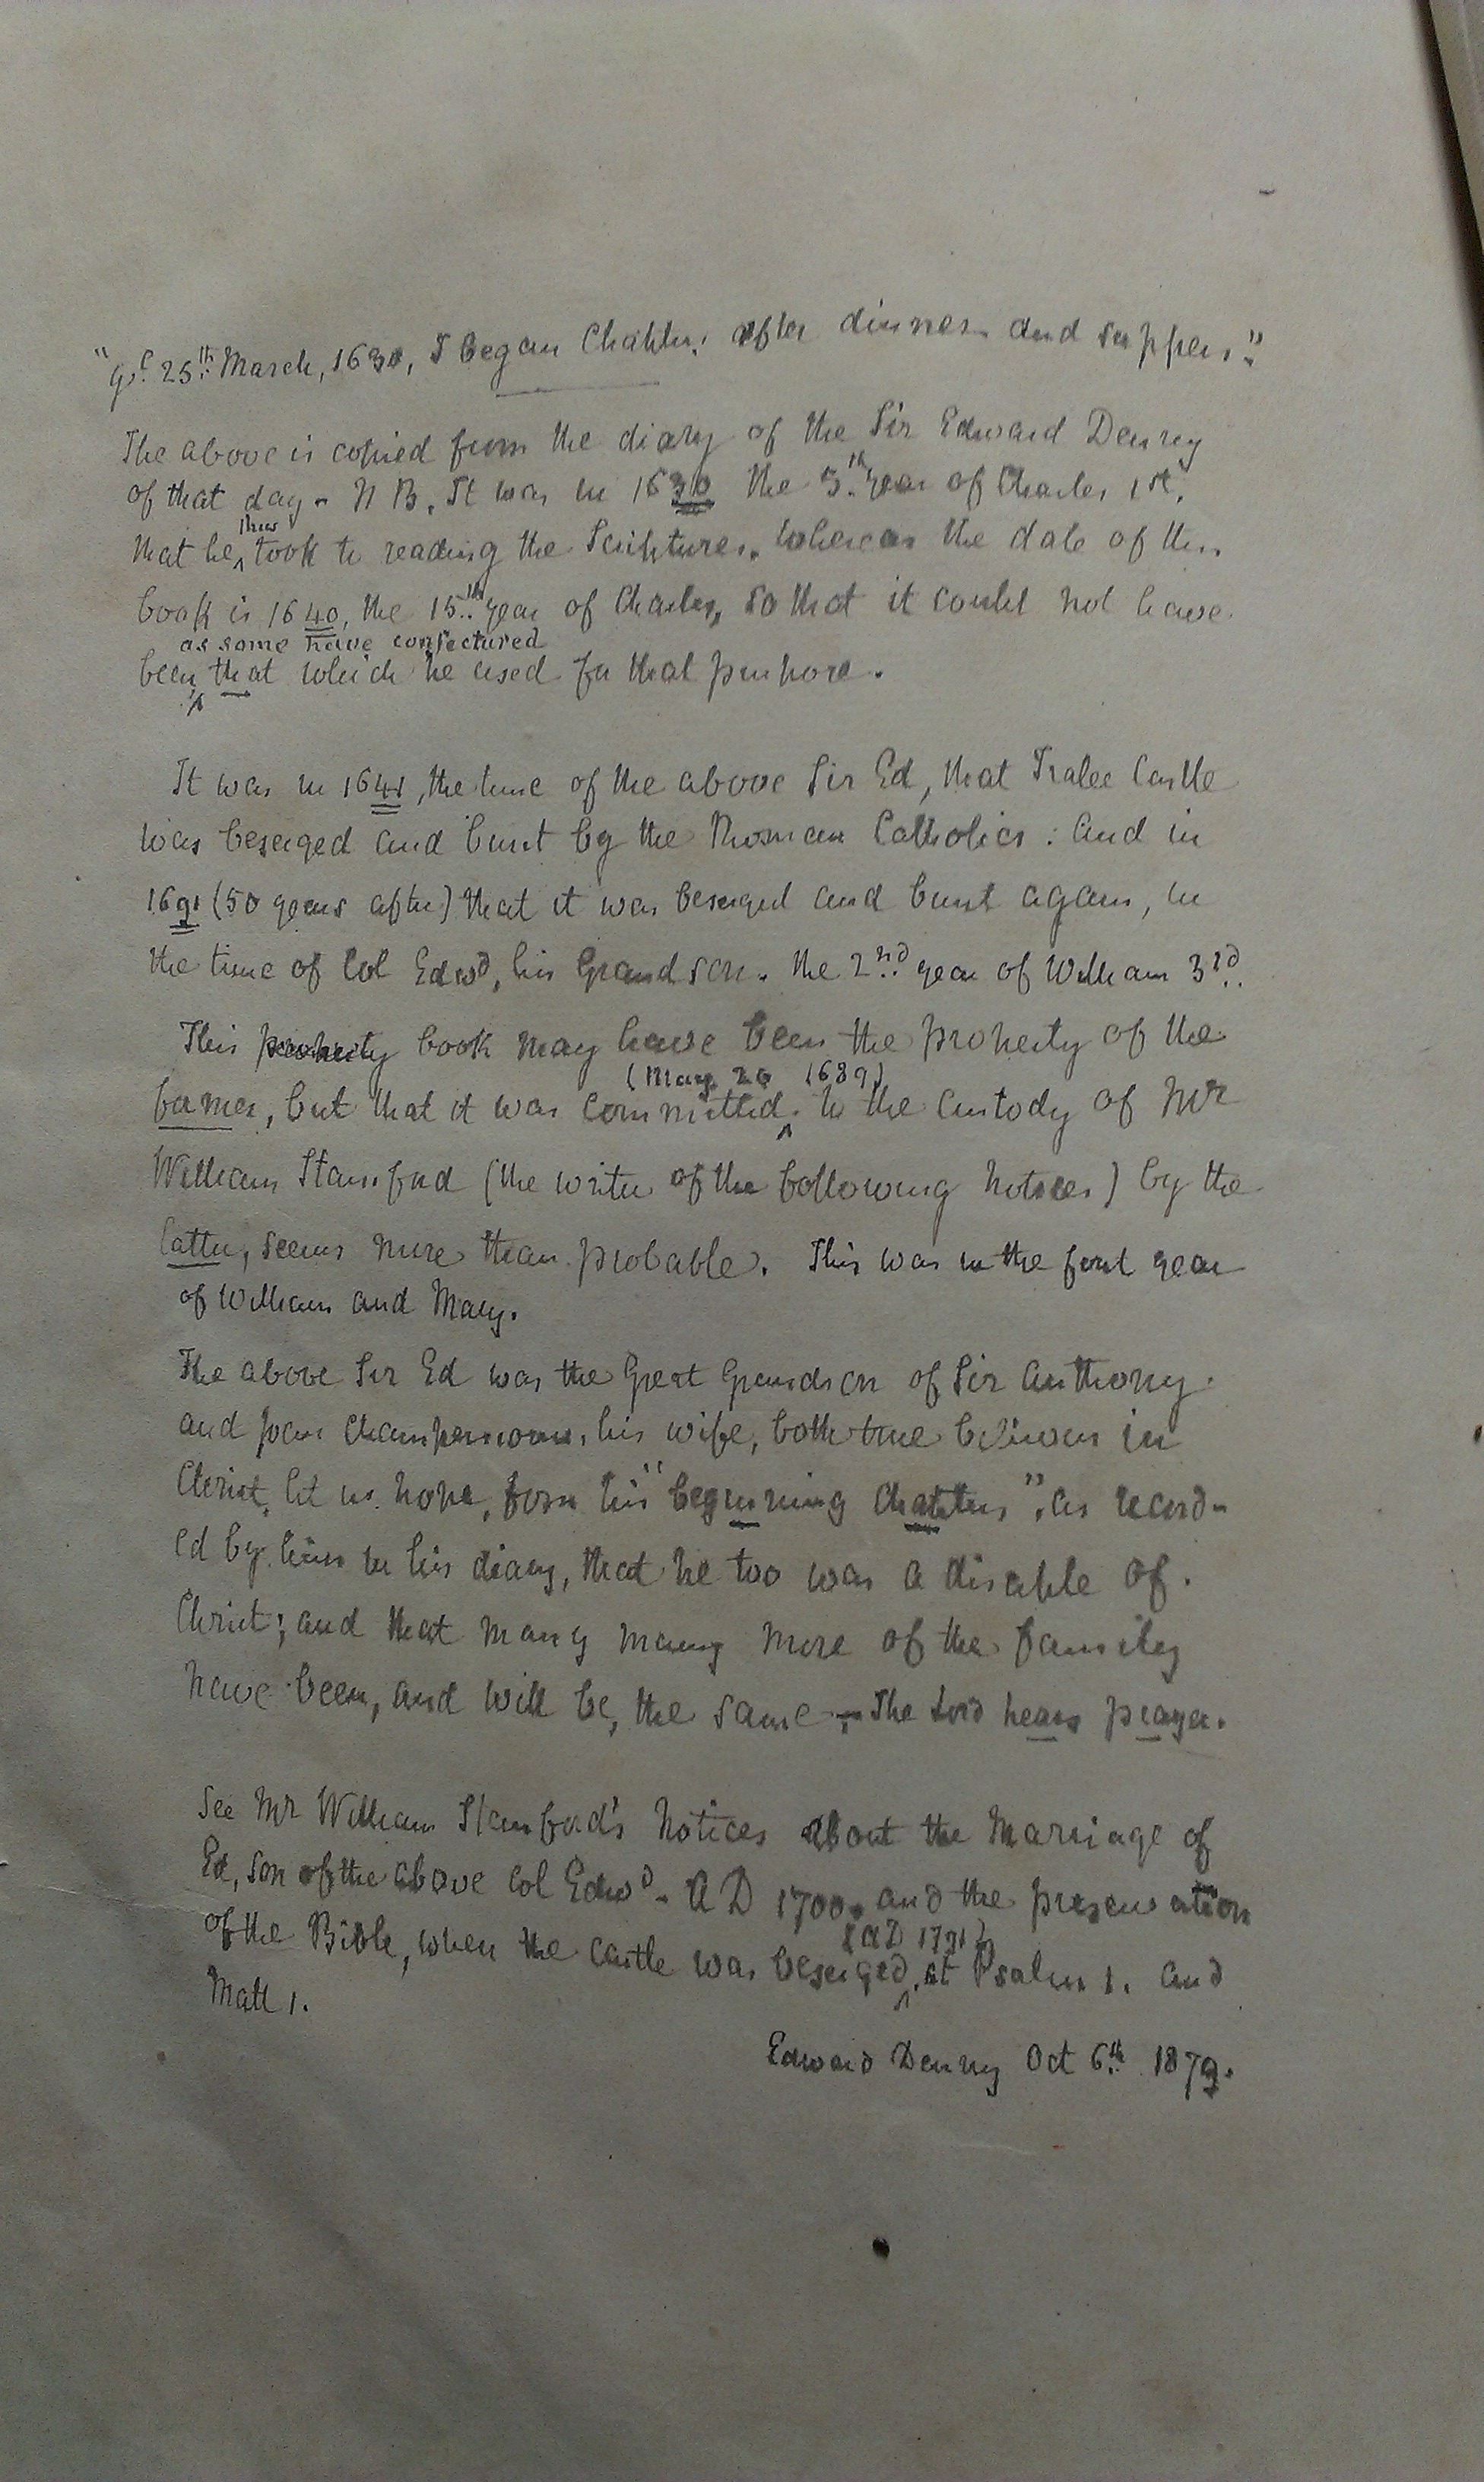 "ye. 25th March, 1630, I began Chapters after dinner and supper."
The above is copied from the diary of the Sir Edward Denny
of that day. N B. It was in 1630 the 5th year of Charles 1st,
thus
that he took to reading the Scriptures. Whereas the date of this
book is 1640, the 15th year of Charles, so that it could not have
as some have conjectured
been that which he used for that purpose.
It was in 1641, the time of the above Sir Ed, that Tralee Castle
was beseiged and burnt by the Roman Catholics: and in
1691 (50 years after) that it was beseiged and burnt again, in
the time of Col Edwd, his Grandson. the 2nd year of William 3rd.
This property book may have been the property of the
(May 20 1689)
former, but that it was committed to the custody of Mr
William Stanford (the writer of the following notices) by the
latter, seems more than probable. This was in the first year
of William and Mary.
The above Sir Ed was the Great Grandson of Sir Anthony
and Joan Champernoun, his wife, both true believers in
Christ, let us hope, from his "beginning Chapters", as record-
ed by him in his diary, that he too was a disciple of
Christ; and that many many more of the family
have been, and will be, the same. The Lord hears prayer.
See Mr William Stanford's Notices about the Marriage of
Ed, son of the above Col Edwd. A D 1700. and the preservation
(AD 1791)
of the Bible, when the castle was beseiged, at Psalm 1. and
Matt 1.
Edward Denny Oct 6th 1879.